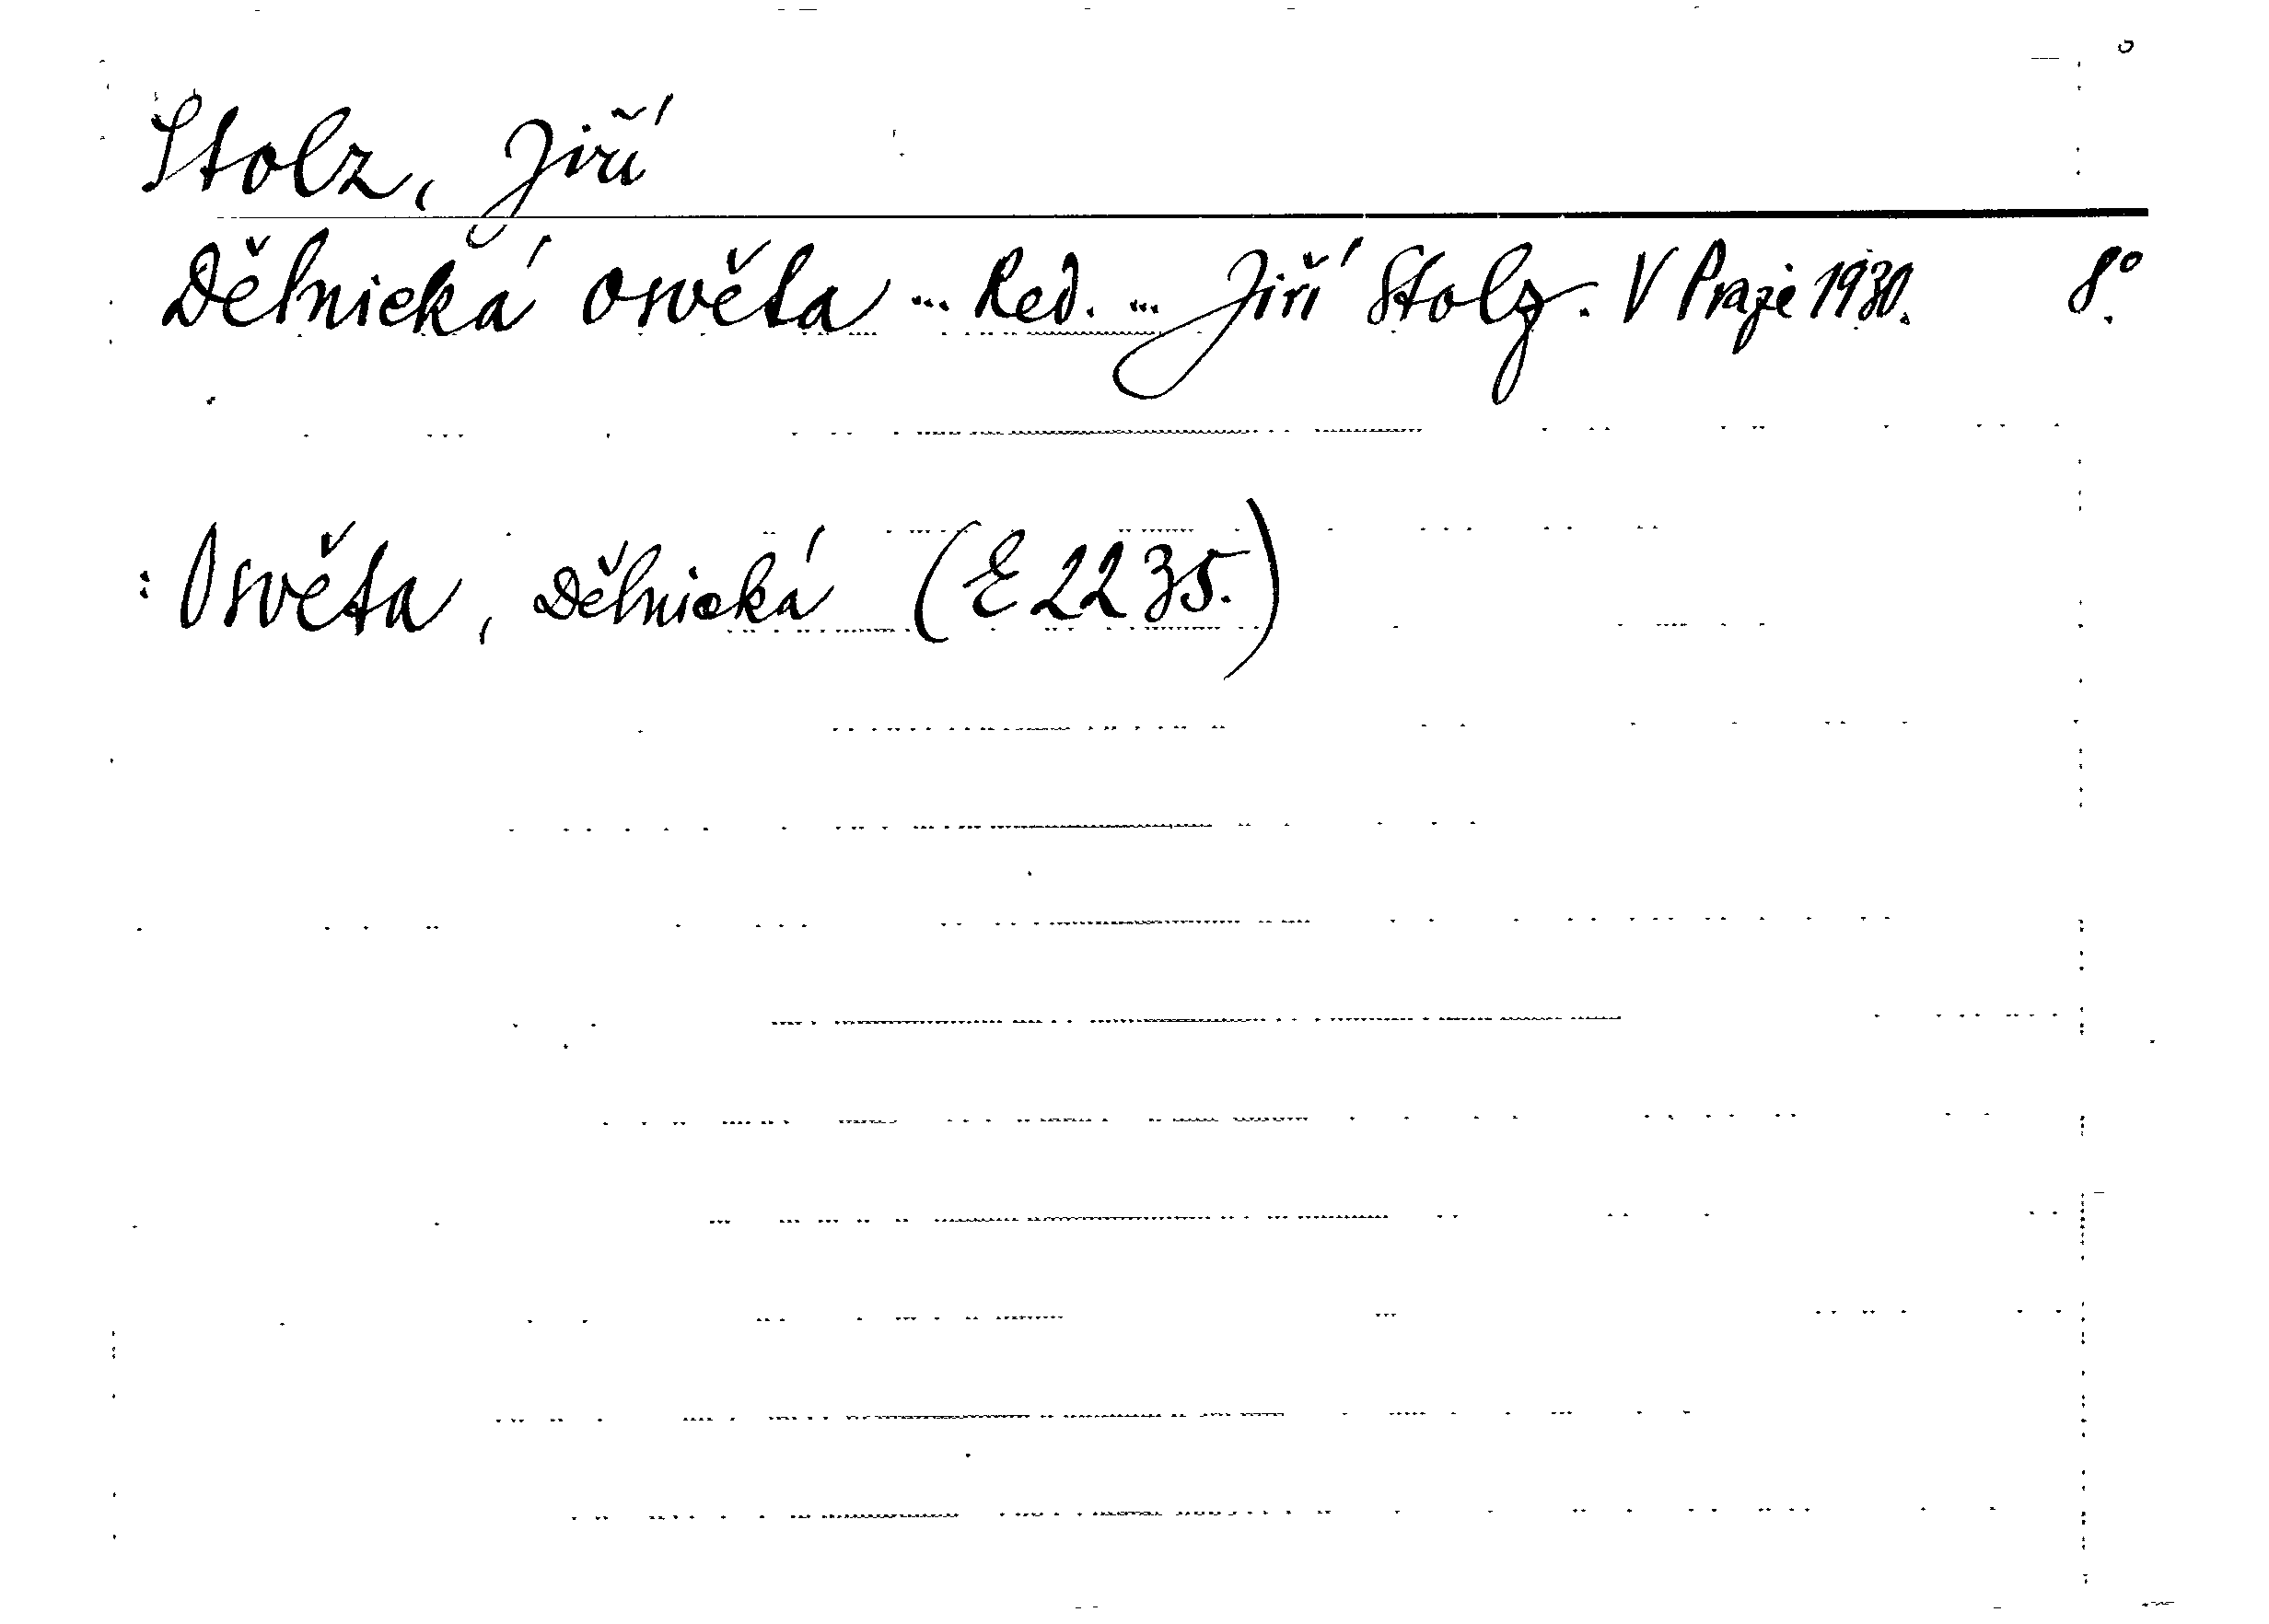 Stolz, Jiří
Dělnická osvěta ... Red. ... Jiří Stolz. V Praze 1930. 8°.
: Osvěta, Dělnická (E 2235.)